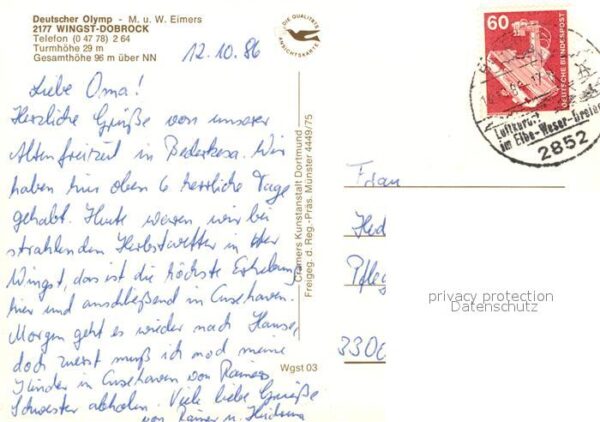 Deutscher Olymp - M. u. W. Eimers
2177 WINGST-DOBROCK
Telefon (0 47 78) 2 64
Turmhöhe 29 m
Gesamthöhe 96 m über NN
12.10.86
Liebe Oma!
Herzliche Grüße von unserer
Altenfreizeit in Bederkesa. Wir
haben hier oben 6 herrliche Tage
gehabt. Heute waren wir bei
strahlenden Herbstwetter in der
Wingst, das ist die höchste Erhebung
hier und anschließend in Cuxhaven.
Morgen geht es wieder nach Hause,
doch zuerst muß ich noch meine
Kinder in Cuxhaven von Rainers
Schwester abholen. Viele liebe Grüße
von Rainer u.
DIE QUALITÄTS
ANSICHTSKARTE
Cramers Kunstanstalt Dortmund
Freigeg. d. Reg.-Präs. Münster 4449/75
Wgst 03
60
DEUTSCHE BUNDESPOST
Luftkurort
im Elbe-Weser-Dreieck
2852
Frau
Hed
Pfleg
330
privacy protection
Datenschutz